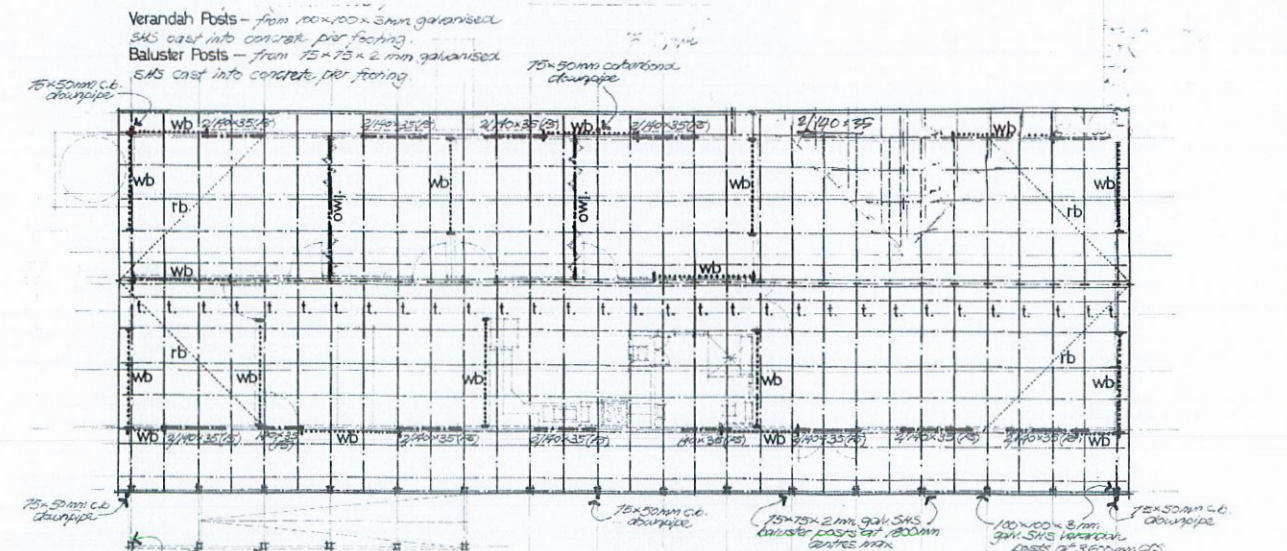 Verandah Posts - from 100x100x3mm galvanised
SHS cast into concrete pier footing.
Baluster Posts - from 75x75x2mm galvanised
SHS cast into concrete pier footing.
75x50mm colorbond
downpipe
75x50mm c.b.
downpipe
wb 2/140x35(F5) 2/140x35(F5) 2/140x35(F5) wb 2/140x35(F5) 2/140x35 wb
wb wb wb wb
rb owj. owj. rb
wb wb
t. t. t. t. t. t. t. t. t. t. t. t. t. t. t. t. t. t. t. t. t. t. t. t. t. t. t. t. t. t.
rb rb
wb wb wb wb wb
wb 2/140x35(F5) wb 2/140x35(F5) 2/140x35(F5) 140x35(F5) wb 2/140x35(F5) 2/140x35(F5) 2/140x35(F5) wb
75x50mm c.b.
downpipe
75x50mm c.b.
downpipe
75x75x2mm galv. SHS
baluster posts at 1800mm
centres max
100x100x3mm
galv. SHS verandah
posts at 3600mm crs
75x50mm c.b.
downpipe